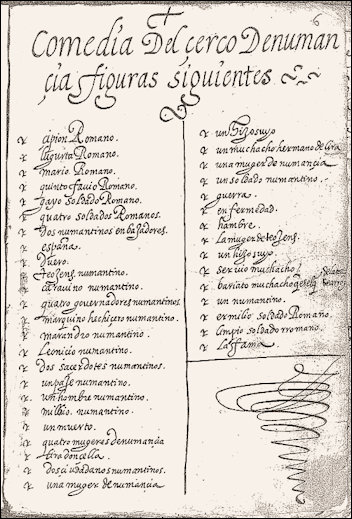 6
Comedia Del çerco Denuman
çia figuras siguientes
çipion Romano.
Iugurta Romano.
mario Romano.
quinto favio Romano.
gayo soldado Romano.
quatro soldados Romanos.
Dos numantinos enbaxadores.
españa.
Duero.
teogenes numantino.
caravino numantino.
quatro governadores numantinos
marquino hechiçero numantino.
marandro numantino.
Leonicio numantino.
Dos saçerdotes numantinos.
un paje numantino.
un hombre numantino.
milbio. numantino.
un muerto.
quatro mugeres denumançia
lira donçella.
dos çiudadanos numantinos.
una muger de numançia
un hijo suyo
un muchacho hermano de lira
una muger de numançia
un soldado numantino.
guerra.
enfermedad.
hambre.
La muger de teogenes.
un hijo suyo.
servio muchacho
bariato muchacho
un numantino.
ermilio soldado Romano.
limpio soldado rromano.
La fama